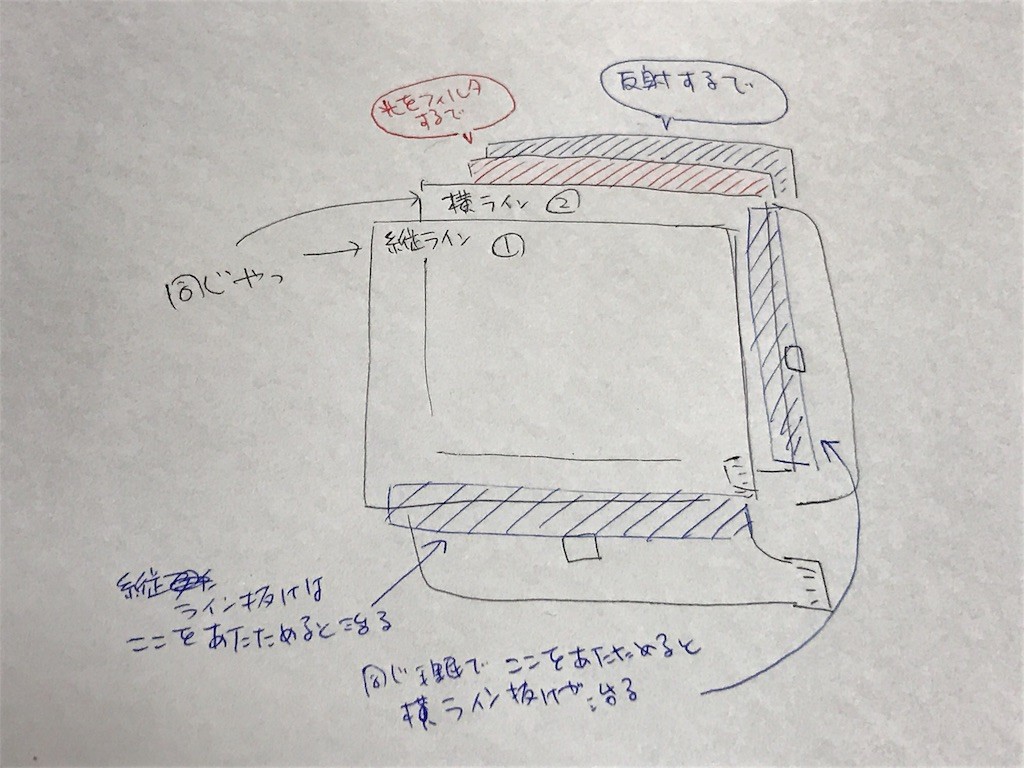 反射するで
光をフィルタ
するで
横ライン ②
縦ライン ①
同じやつ
縦
ライン抜けは
ここをあたためると治る
同じ で ここをあたためると
横ライン抜けが治る